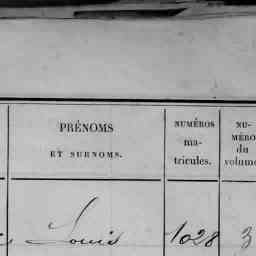 PRÉNOMS
ET SURNOMS.
NUMÉROS
ma-
tricules.
NU-
MÉRO
du
volume
Louis
1028
3